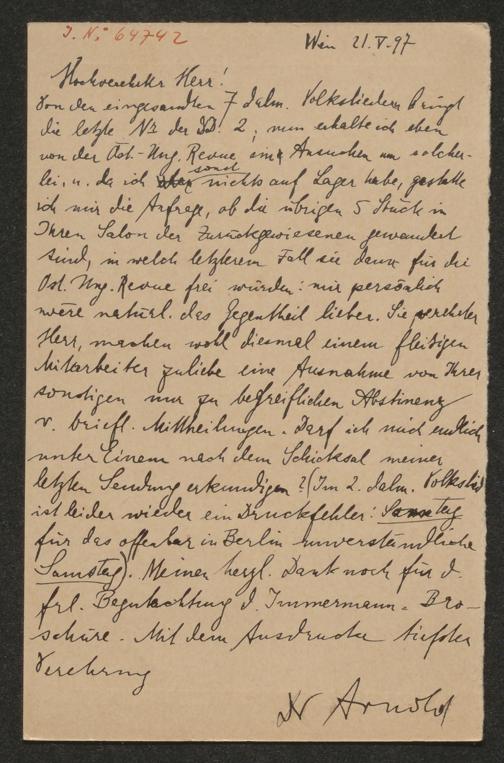 J. N. 64742
Wien 21.V.97
Hochverehrter Herr!
Von den eingesandten 7 dalm. Volksliedern bringt
die letzte No der DD. 2; nun erhalte ich eben
von der Öst.-Ung. Revue ein Ansuchen um solcher-
lei, u. da ich aber sonst nichts auf Lager habe, gestatte
ich mir die Anfrage, ob die übrigen 5 Stück in
Ihren Salon der Zurückgewiesenen gewandert
sind, in welch letzterem Fall sie dann für die
Öst. Ung. Revue frei würden: mir persönlich
wäre natürl. das Gegentheil lieber. Sie, verehrter
Herr, machen wohl diesmal einem fleißigen
Mitarbeiter zuliebe eine Ausnahme von Ihrer
sonstigen nur zu begreiflichen Abstinenz
v. briefl. Mittheilungen. Darf ich mich endlich
unter Einem nach dem Schicksal meiner
letzten Sendung erkundigen? (Im 2. dalm. Volkslied
ist leider wieder ein Druckfehler: Sanstag
für das offenbar in Berlin unverständliche
Samstag). Meinen herzl. Dank noch für d.
frl. Begutachtung d. Immermann-Bro-
schüre. Mit dem Ausdrucke tiefster
Verehrung
Dr Arnold